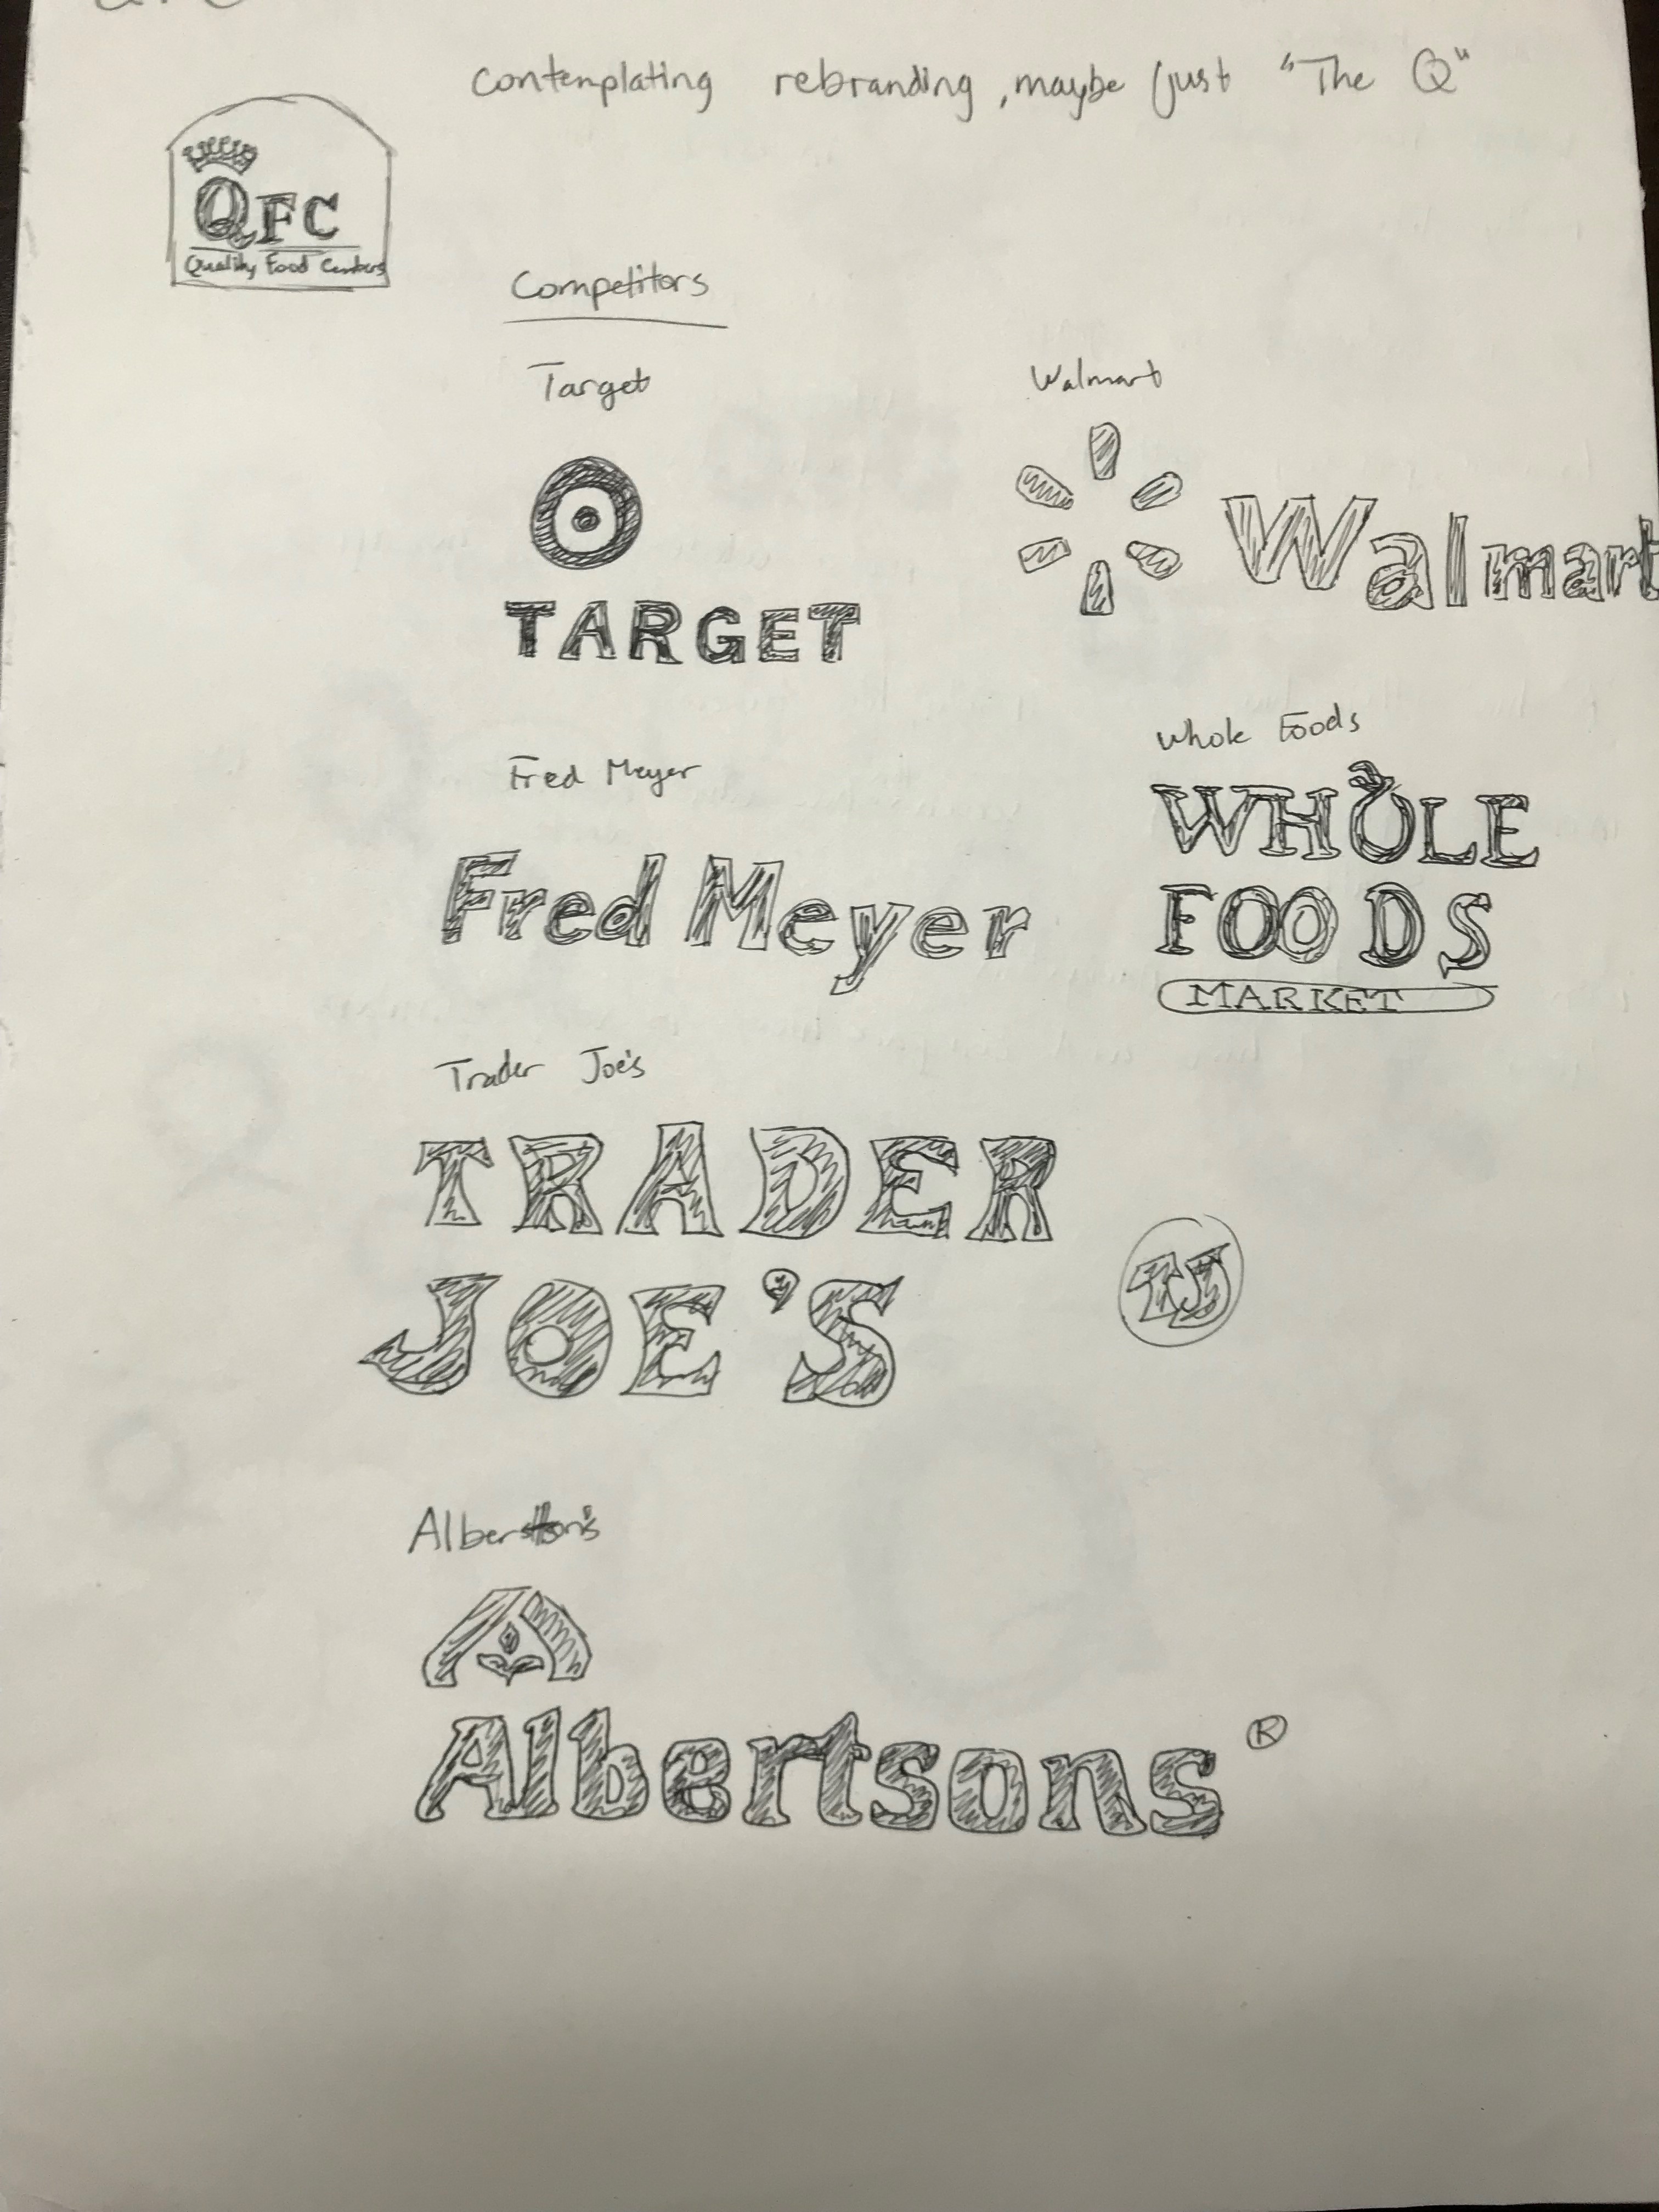 Contemplating rebranding, maybe just "The Q"
QFC
Quality Food Centers
Competitors
Target
Walmart
TARGET
Walmart
Fred Meyer
Whole Foods
Fred Meyer
WHOLE
FOODS
MARKET
Trader Joe's
TRADER
JOE'S
TJ
Albertson's
A
Albertsons ®